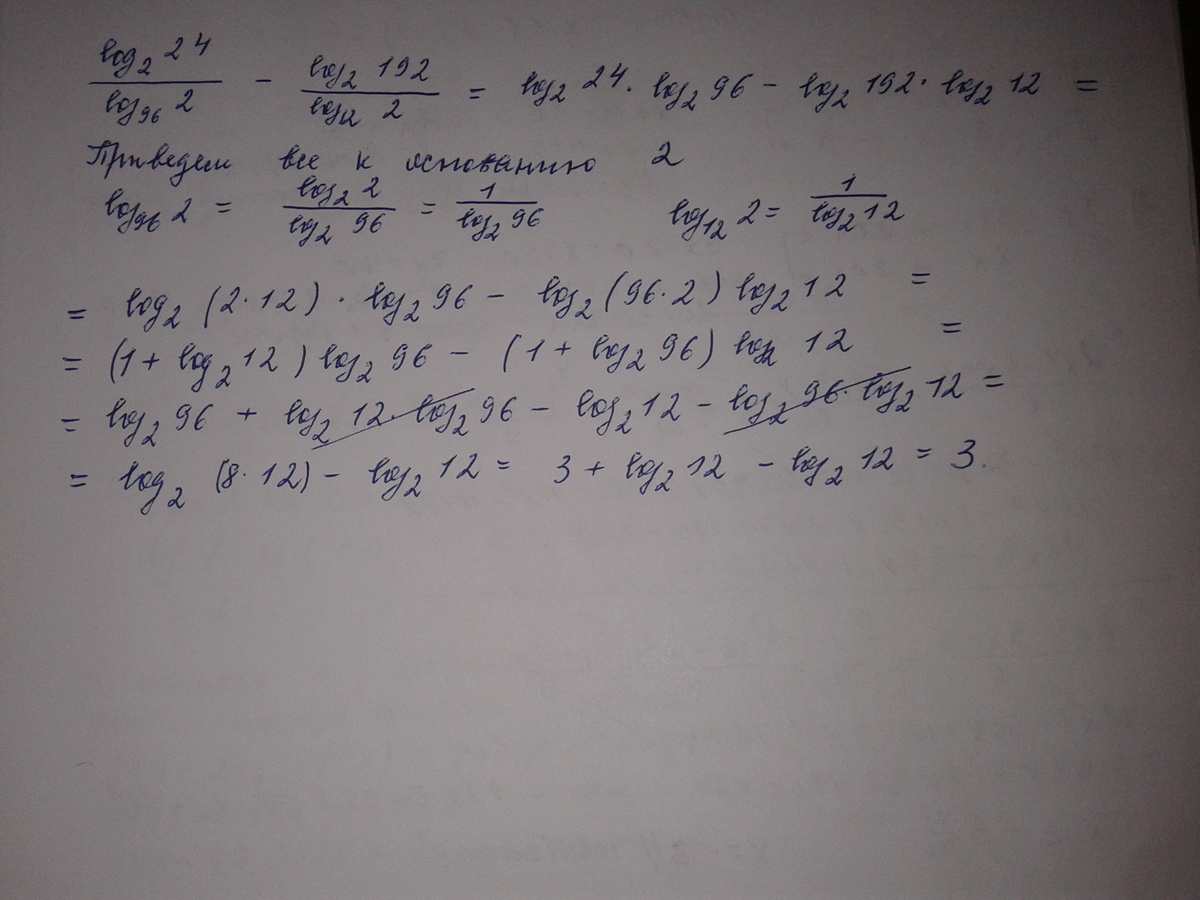 log₂ 24 / log₉₆ 2 − log₂ 192 / log₁₂ 2 = log₂ 24 · log₂ 96 − log₂ 192 · log₂ 12 =
Приведем все к основанию 2
log₉₆ 2 = log₂ 2 / log₂ 96 = 1 / log₂ 96 log₁₂ 2 = 1 / log₂ 12
= log₂ (2·12) · log₂ 96 − log₂ (96·2) log₂ 12 =
= (1 + log₂ 12) log₂ 96 − (1 + log₂ 96) log₂ 12 =
= log₂ 96 + log₂ 12 · log₂ 96 − log₂ 12 − log₂ 96 · log₂ 12 =
= log₂ (8·12) − log₂ 12 = 3 + log₂ 12 − log₂ 12 = 3.